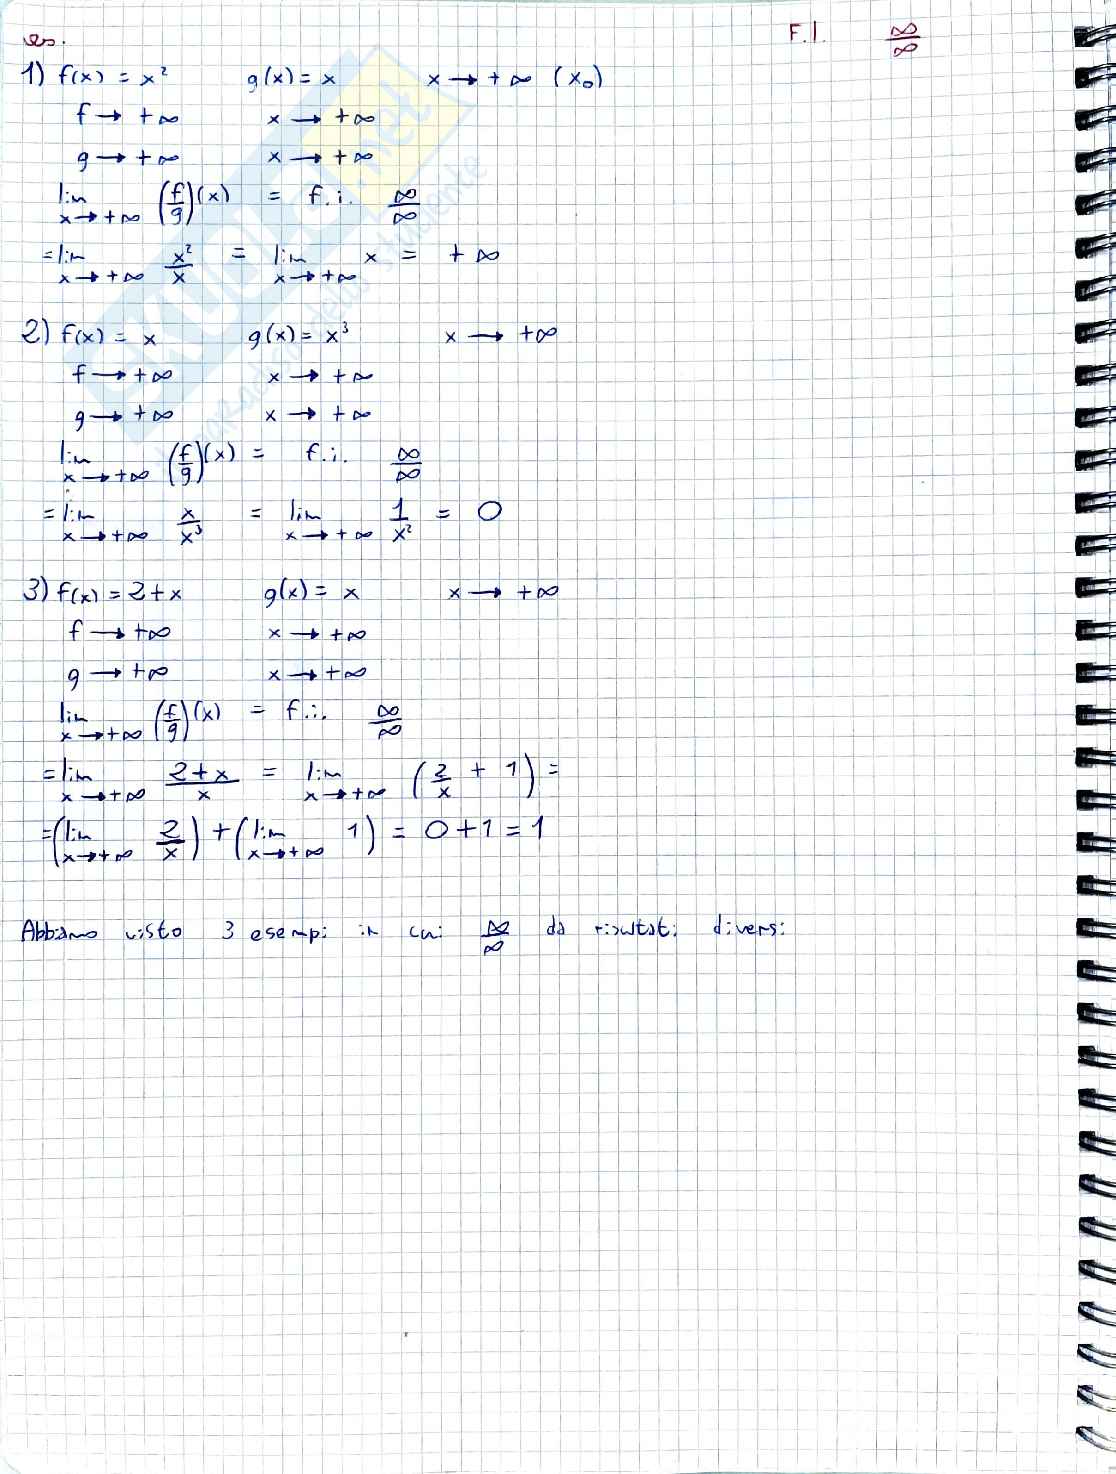 es. F.I. ∞/∞
1) f(x) = x² g(x) = x x → +∞ (x₀)
f → +∞ x → +∞
g → +∞ x → +∞
lim x→+∞ (f/g)(x) = f.i. ∞/∞
= lim x→+∞ x²/x = lim x→+∞ x = +∞
2) f(x) = x g(x) = x³ x → +∞
f → +∞ x → +∞
g → +∞ x → +∞
lim x→+∞ (f/g)(x) = f.i. ∞/∞
= lim x→+∞ x/x³ = lim x→+∞ 1/x² = 0
3) f(x) = 2+x g(x) = x x → +∞
f → +∞ x → +∞
g → +∞ x → +∞
lim x→+∞ (f/g)(x) = f.i. ∞/∞
= lim x→+∞ 2+x/x = lim x→+∞ (2/x + 1) =
= (lim x→+∞ 2/x) + (lim x→+∞ 1) = 0+1 = 1
Abbiamo visto 3 esempi in cui ∞/∞ da risultati diversi